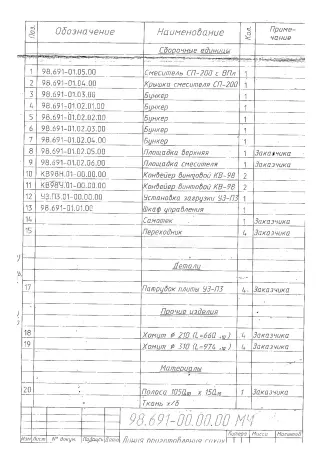 Поз. Обозначение Наименование Кол. Приме-
чание
Сборочные единицы
1 98.691-01.05.00 Смеситель СП-200 с ВПл 1
2 98.691-01.04.00 Крышка смесителя СП-200 1
3 98.691-01.03.00 Бункер 1
4 98.691-01.02.01.00 Бункер 1
5 98.691-01.02.02.00 Бункер 1
6 98.691-01.02.03.00 Бункер 1
7 98.691-01.02.04.00 Бункер 1
8 98.691-01.02.05.00 Площадка верхняя 1 Заказчика
9 98.691-01.02.06.00 Площадка смесителя 1 Заказчика
10 КВ98Н.01-00.00.00 Конвейер винтовой КВ-98 2
11 КВ98Ч.01-00.00.00 Конвейер винтовой КВ-98 2
12 УЗ.П3.01-00.00.00 Установка загрузки УЗ-П3 1
13 98.691-01.01.00 Шкаф управления 1
14 Самотек 1 Заказчика
15 Переходник 4 Заказчика
Детали
17 Патрубок плиты УЗ-П3 4 Заказчика
Прочие изделия
18 Хомут Ф 210 (L=660 4 Заказчика
19 Хомут Ф 310 (L=974 4 Заказчика
Материалы
20 Полоса 1 Заказчика
Ткань х/б
98.691-00.00.00 МЧ
Изм Лист № докум. Подпись Дата Линия приготовления сухих Литера Масса Масштаб